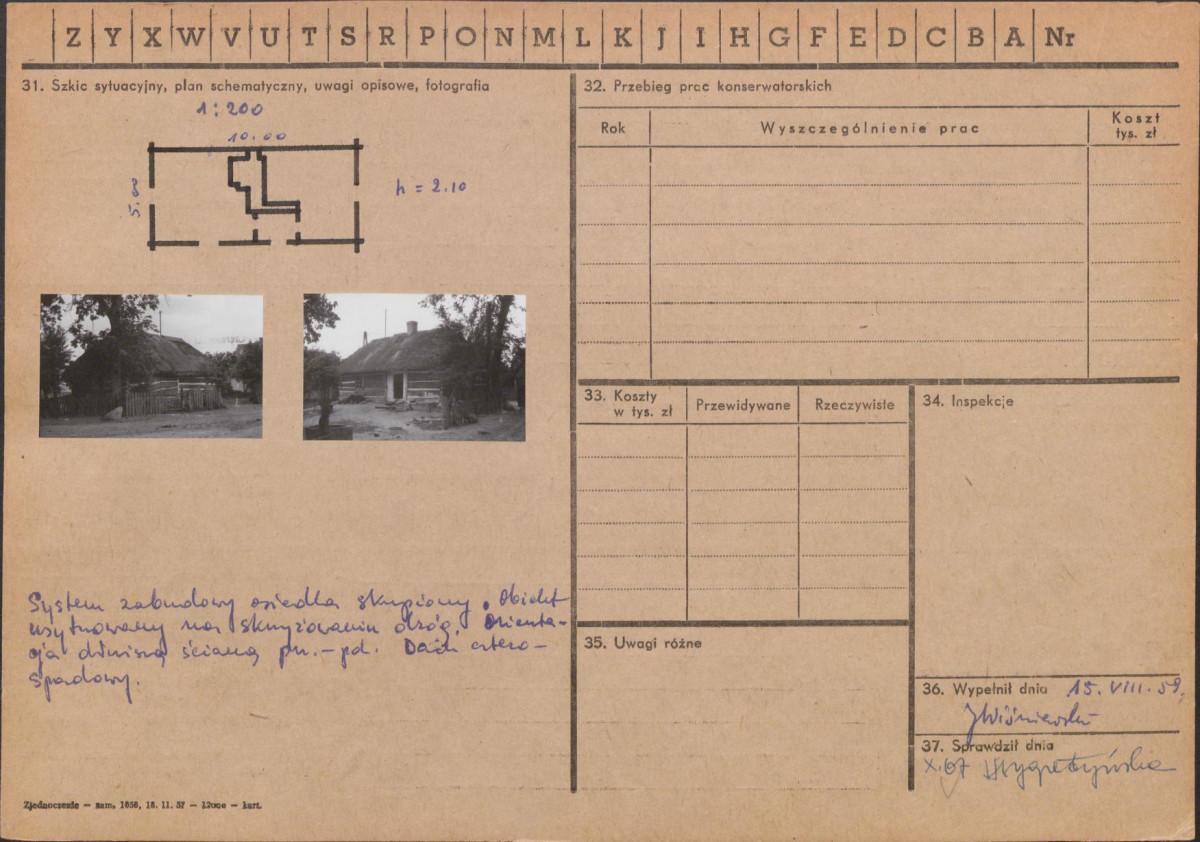 Z Y X W V U T S R P O N M L K J I H G F E D C B A Nr
31. Szkic sytuacyjny, plan schematyczny, uwagi opisowe, fotografia
1:200
10.00
5.00
h = 2.10
System zabudowy osiedla skupiony. Obiekt
usytuowany na skrzyżowaniu dróg. Orienta-
cja dłuższą ścianą pn.-pd. Dach cztero-
spadowy.
Zjednoczenie — zam. 1656, 18. 11. 57 — 12000 — kart.
32. Przebieg prac konserwatorskich
Rok Wyszczególnienie prac Koszt tys. zł
33. Koszty w tys. zł Przewidywane Rzeczywiste
34. Inspekcje
35. Uwagi różne
36. Wypełnił dnia 15. VIII. 59.
JWiśniewski
37. Sprawdził dnia
X. 67